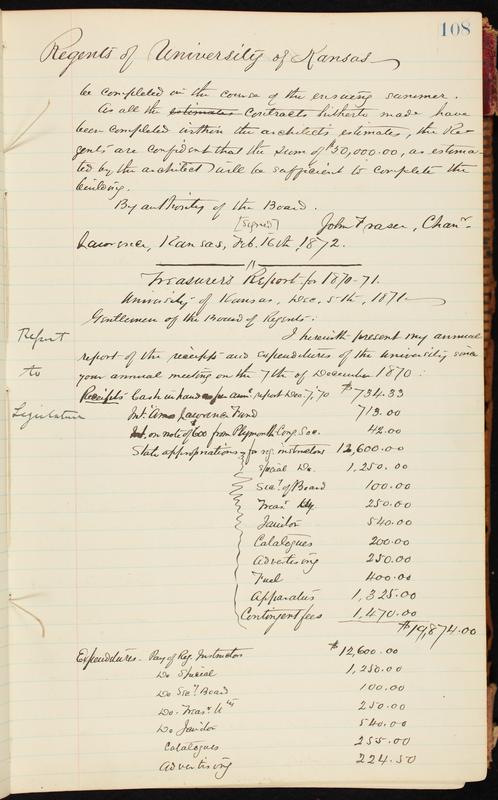 108
Regents of University of Kansas
be completed in the course of the ensuing summer.
As all the estimates contracts hitherto made have
been completed within the architects estimates, the Re-
gents are confident that the sum of $50,000.00, as estima-
ted by the architect will be sufficient to complete the
building.
By authority of the Board.
[Signed] John Fraser, Chanr.
Lawrence, Kansas, Feb. 16th, 1872.
Treasurer's Report for 1870-71.
University of Kansas, Dec. 5th, 1871
Gentlemen of the Board of Regents:
I herewith present my annual
Report to Legislature
report of the receipts and expenditures of the University since
your annual meeting on the 7th of December 1870:
Receipts Cash in hand per ann. report Dec. 7, '70 $734.33
Int. Amos Lawrence Fund 713.00
Int. on note of $600 from Plymouth Cong. Soc. 42.00
State appropriations for reg. instructors 12,600.00
Special Do. 1,250.00
Sec'y of Board 100.00
Treasr 250.00
Janitor 540.00
Catalogues 200.00
Advertising 250.00
Fuel 400.00
Apparatus 1,325.00
Contingent fees 1,470.00
$19,874.00
Expenditures - Pay of Reg. Instructors $12,600.00
Do Special 1,250.00
Do Sec'y Board 100.00
Do. Treasr 250.00
Do Janitor 540.00
Catalogues 255.00
Advertising 224.50